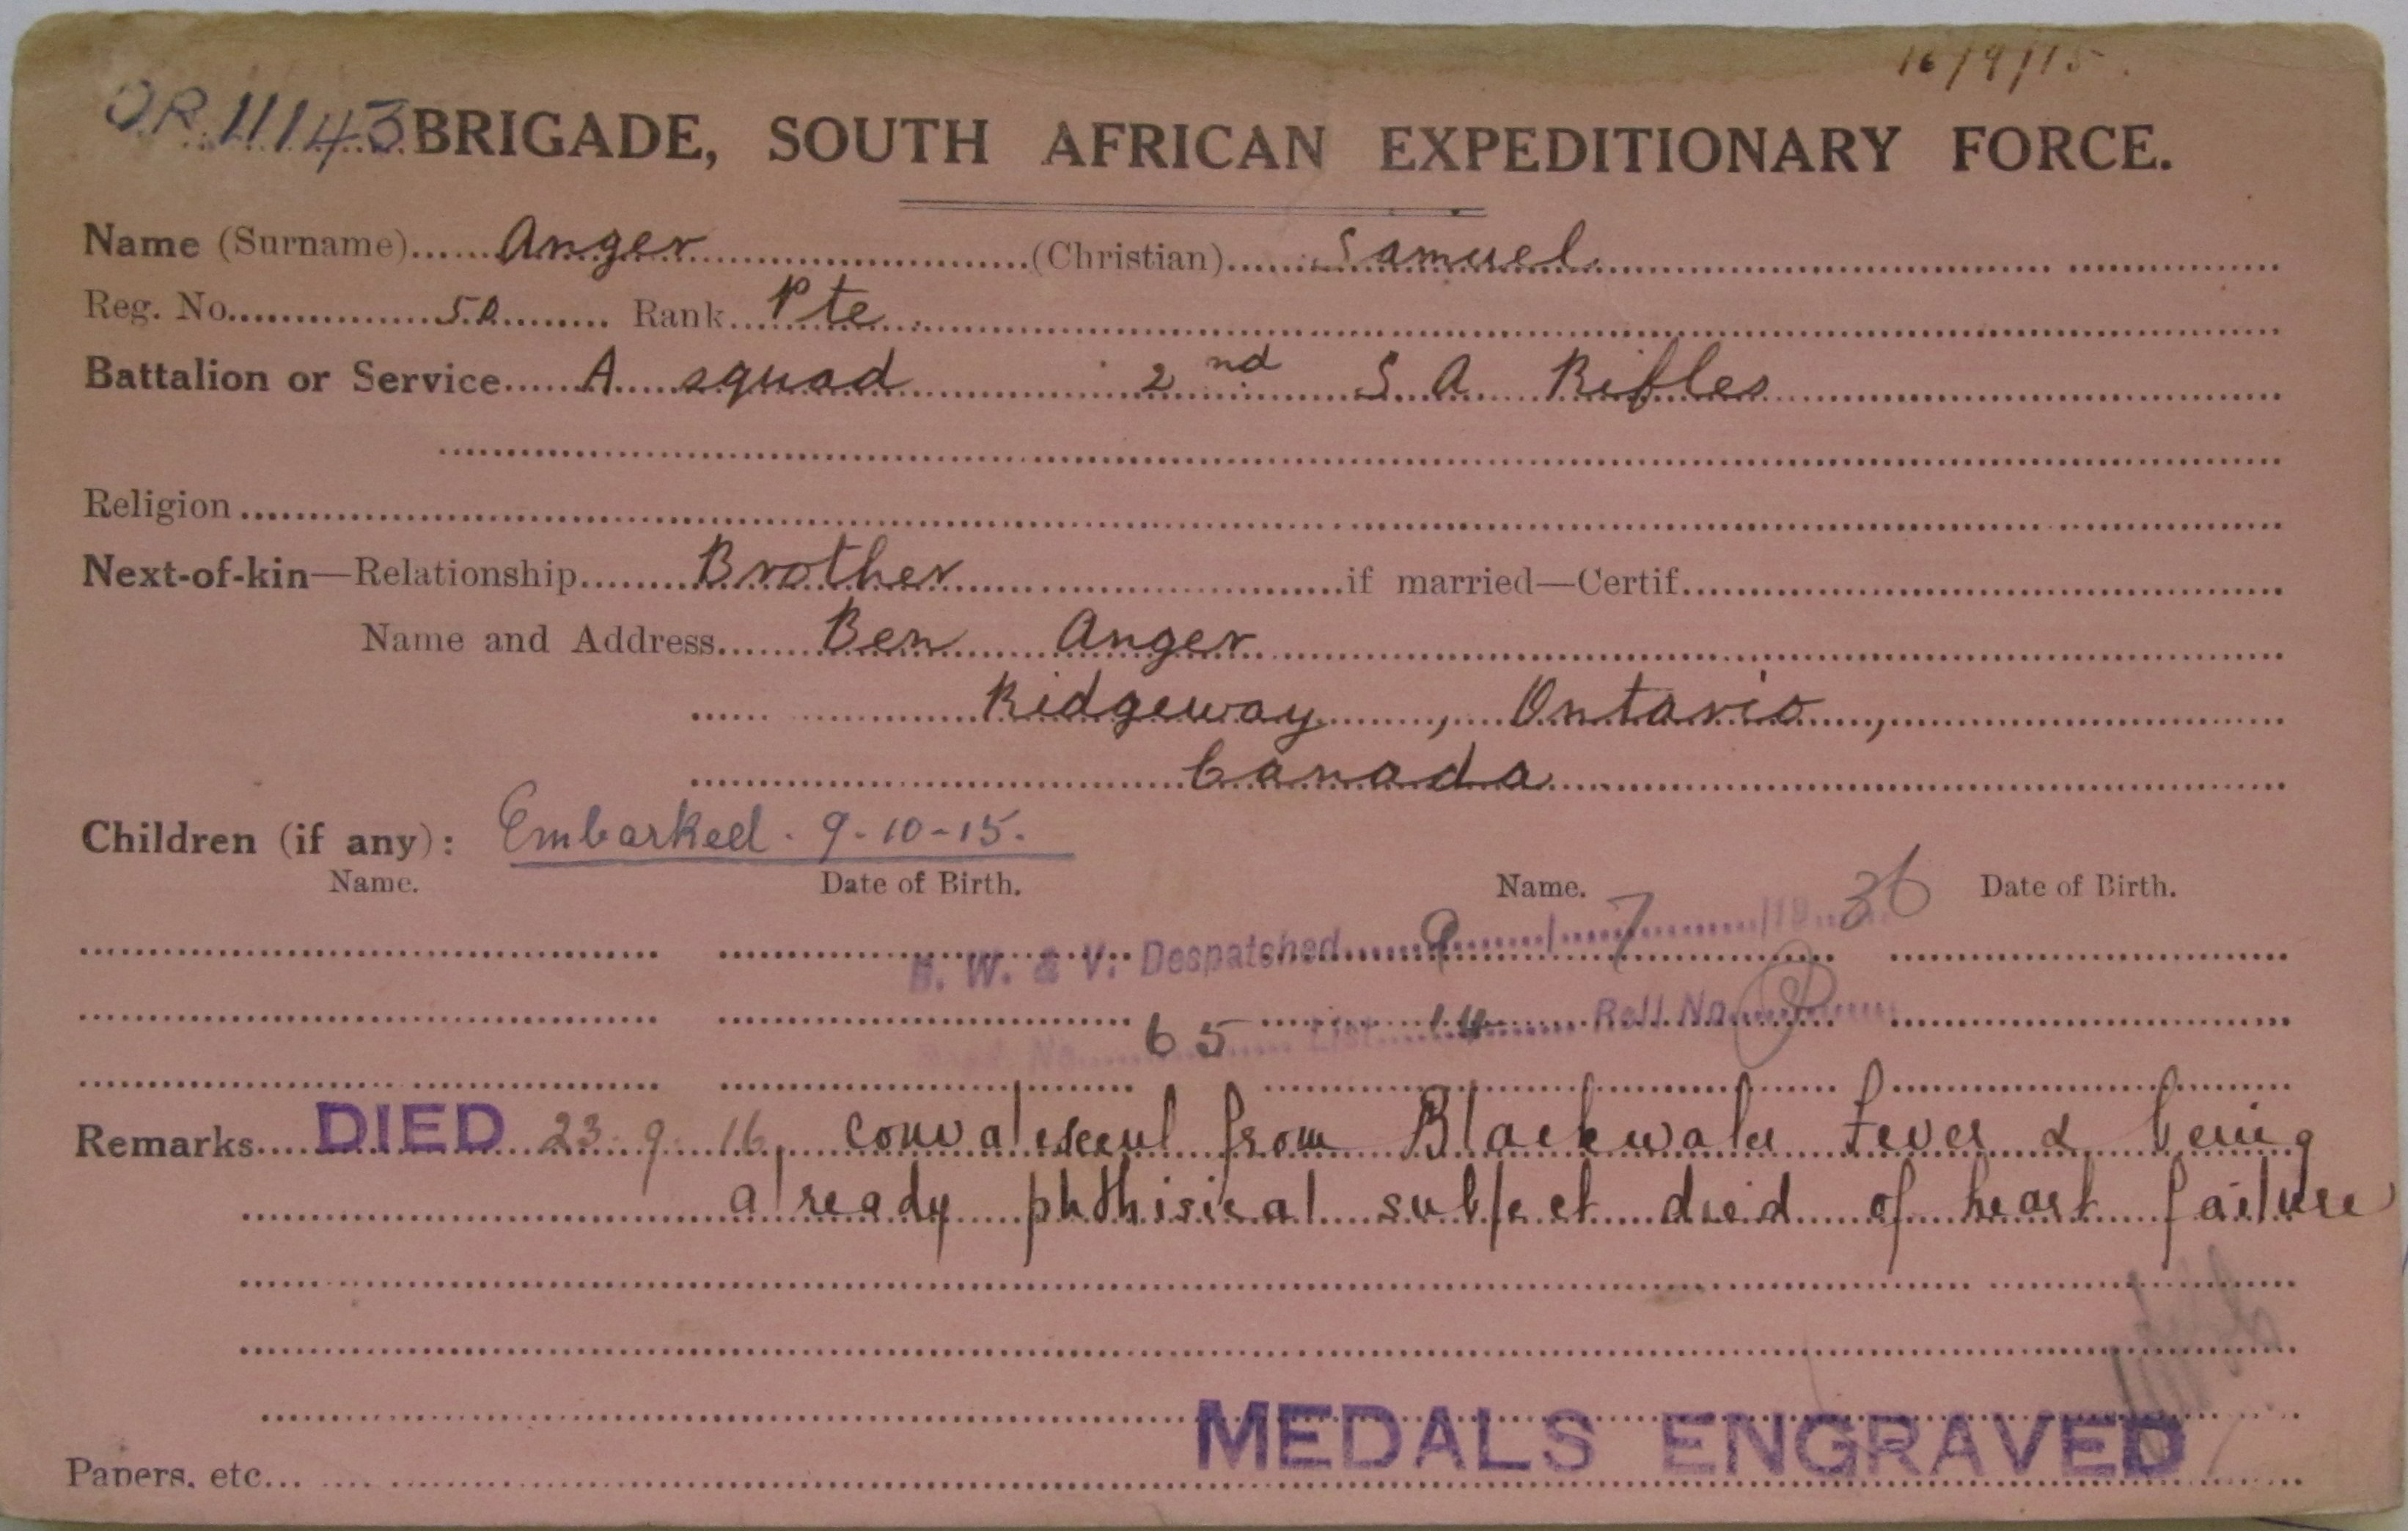 16/9/15.
O.R. 11143 BRIGADE, SOUTH AFRICAN EXPEDITIONARY FORCE.
Name (Surname) Anger (Christian) Samuel
Reg. No. 50 Rank Pte
Battalion or Service A squad 2nd S A Rifles
Religion
Next-of-kin—Relationship Brother if married—Certif.
Name and Address Ben Anger
Ridgeway, Ontario,
Canada
Children (if any): Embarked. 9-10-15.
Name. Date of Birth. Name. Date of Birth.
B. W. & V. Despatched 9/7/1936
No. 65 List 14 Roll No.
Remarks DIED 23.9.16, convalescent from Blackwater Fever & being
already phthisical subject died of heart failure
MEDALS ENGRAVED
Papers, etc.